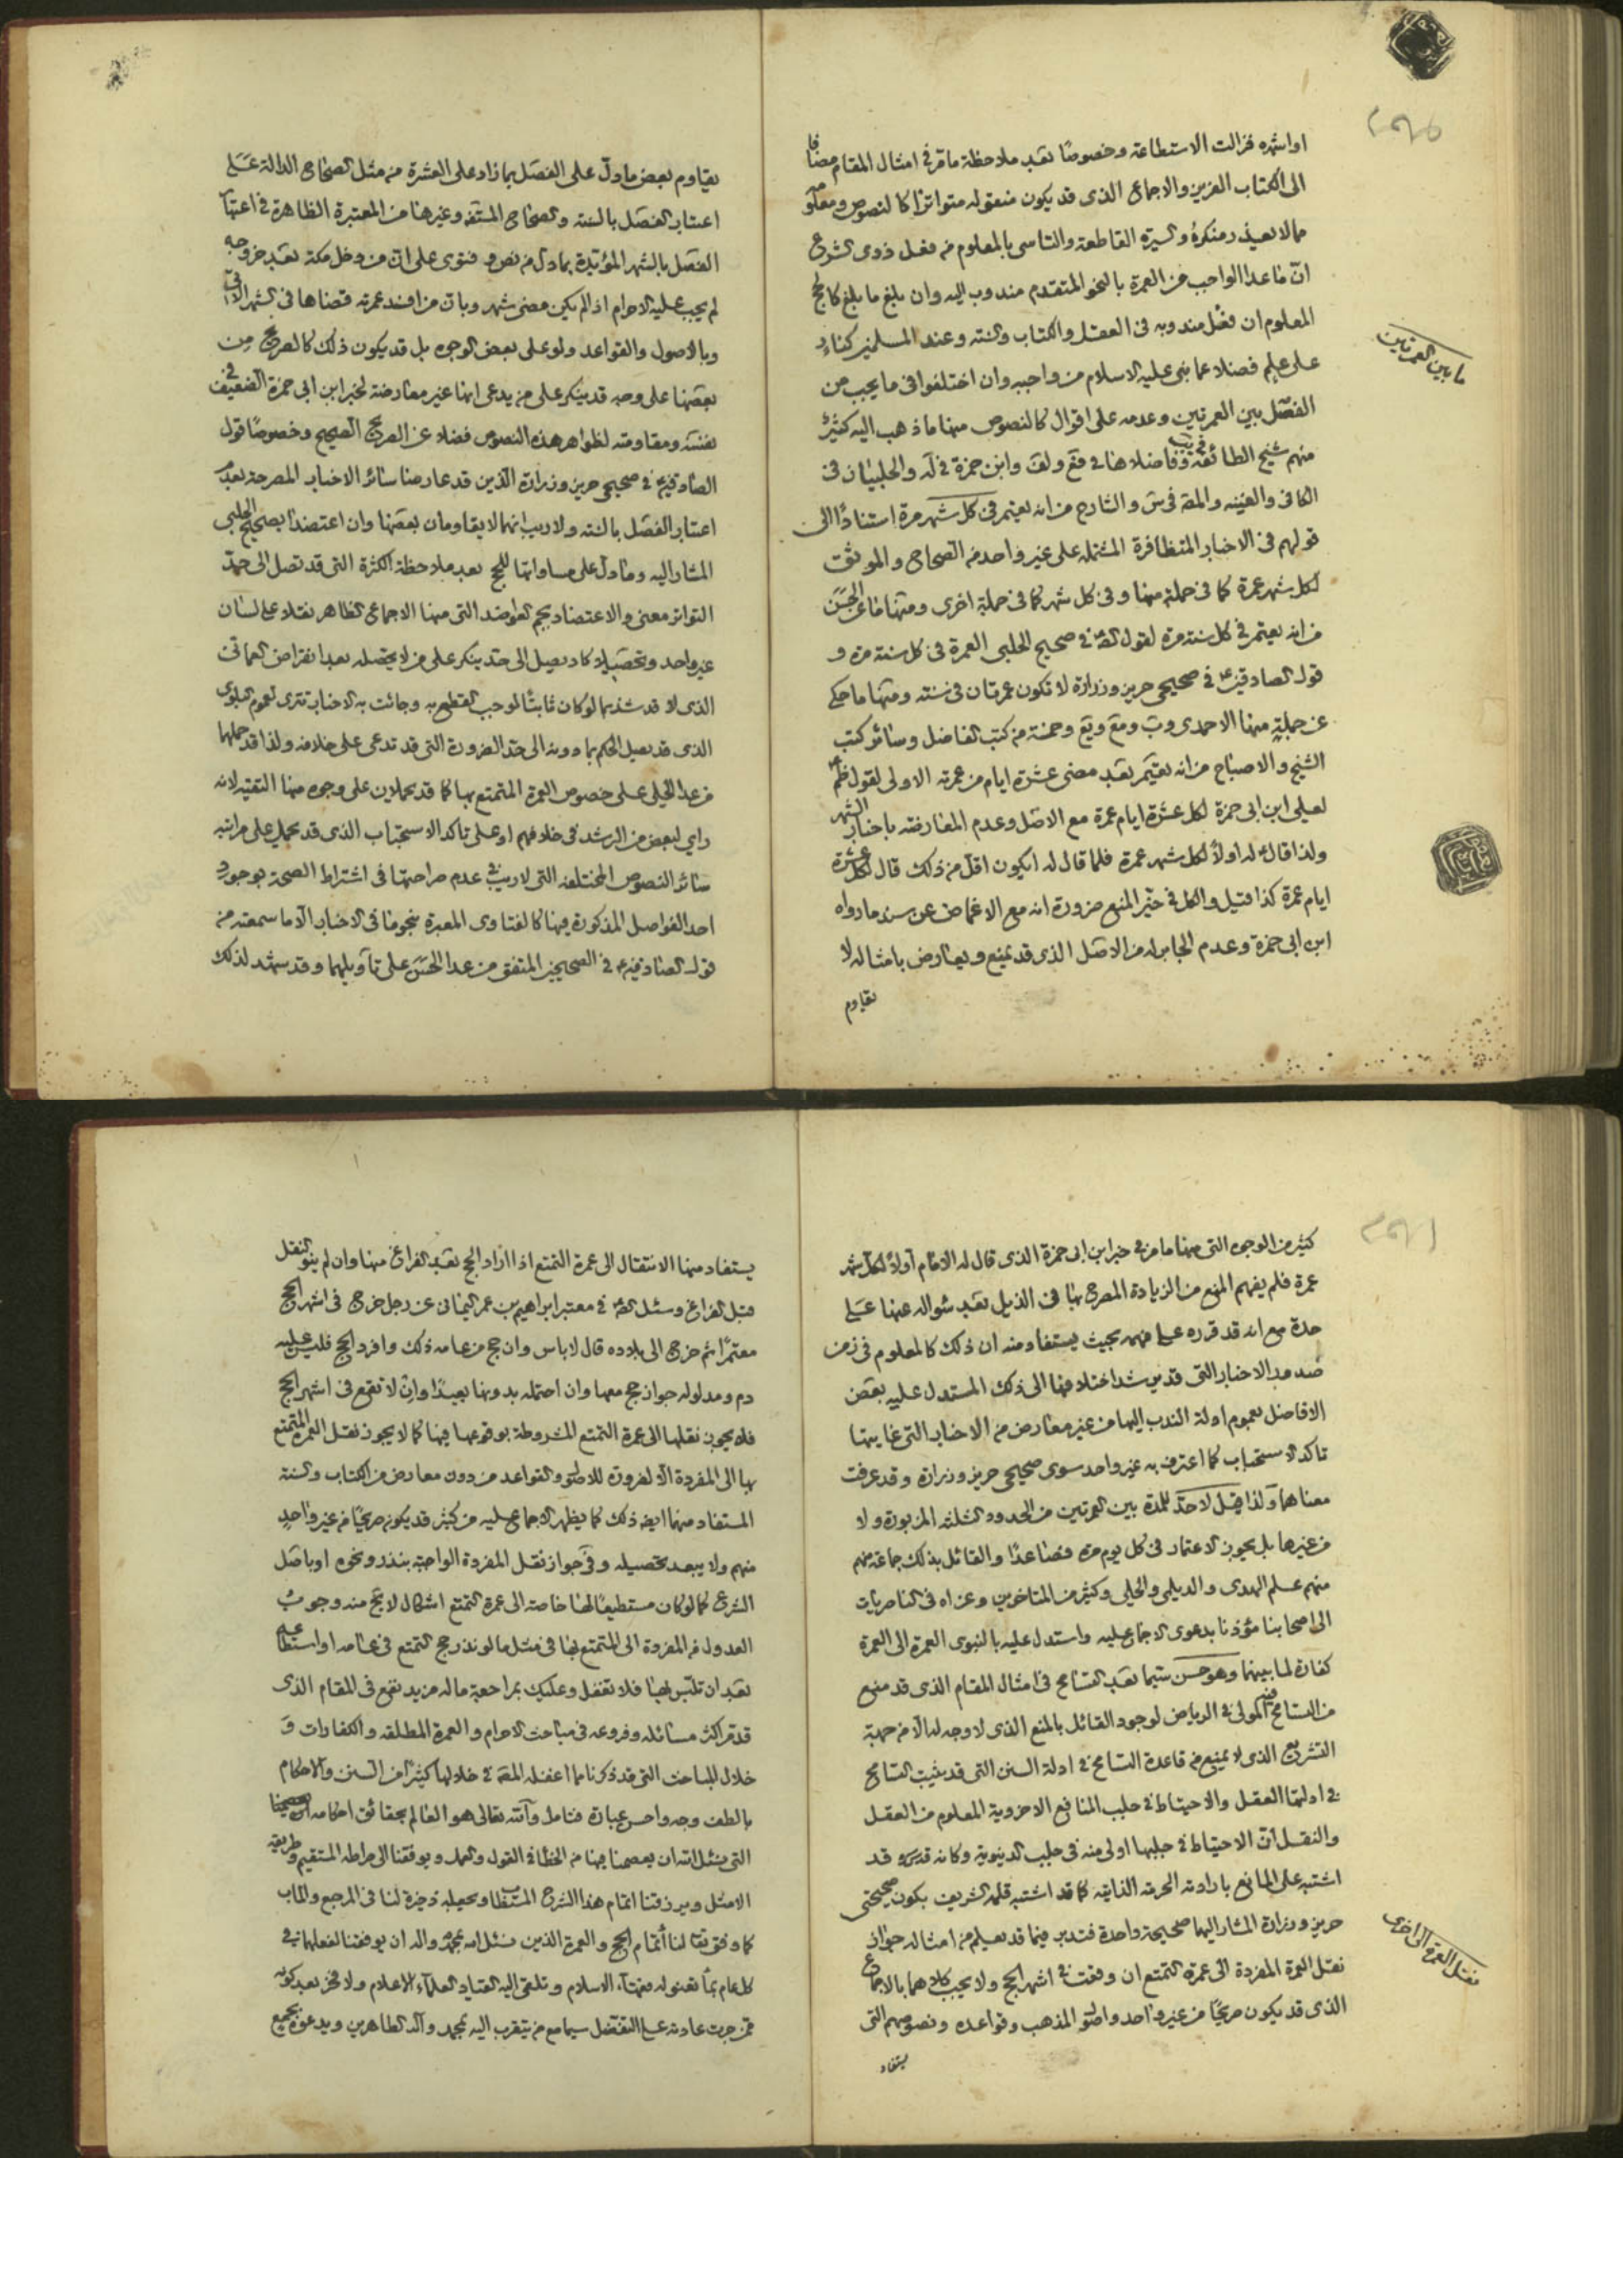 او اشهره فزالت الاستطاعة وخصوصًا بعد ملاحظة ما مر في امثال المقام مضافا
الى الكتاب العزيز والاجماع الذى قد يكون منقوله متواترا كالنصوص ومعلو
مما لا يعيذر منكره والسيرة القاطعة والتاسى بالمعلوم من فعل ذوى الشرع
انّ ما عدا الواجب من العمرة بالنحو المتقدم مندوب اليه وان بلغ ما بلغ كالحج
المعلوم ان فضل مندوبه فى العقل والكتاب والسنة وعند المسلمين كنار
على علم فضلا عما بنى عليه الاسلام من واجبه وان اختلفوا فى ما يجب من
ما بين العمرتين
الفصل بين العمرتين وعدمه على اقوال كالنصوص منها ما ذهب اليه كثيرٌ
منهم شيخ الطائفة وفاضلاها في فع ولف وابن حمزة في له والحلبيان فى
الكافى والغنية والمص فى س والشارح من انه يعتمر فى كل شهر مرة استنادًا الى
قولهم فى الاخبار المتظافرة المشتملة على غير واحد من الصحاح والموثق
لكل شهر عمرة كما فى جملة منها وفى كل شهر كما فى جملة اخرى ومنها ما عن الحسن
من انه يعتمر فى كل سنة مرة لقول الص في صحيح الحلبى العمرة فى كل سنة مرة و
قول الصادقين ع فى صحيحى حريز وزرارة لا تكون عمرتان فى سنة ومنها ما حكى
عن جملةٍ منها الاحمدى وب ومع ويع وخمسة من كتب الفاضل وسائر كتب
الشيخ والاصباح من انه يعتمر بعد مضى عشرة ايام من عمرته الاولى لقول ظم
لعلى ابن ابى حمزة لكل عشرة ايام عمرة مع الاصل وعدم المعارضة باخبار الشهر
ولذا قال له اولا لكل شهر عمرة فلما قال له ايكون اقل من ذلك قال لكل عشرة
ايام عمرة كذا قيل والكل فى حيّز المنع ضرورة انه مع الاغماض عن سند ما رواه
ابن ابى حمزة وعدم الجابر له من الاصل الذى قد يمنع ويعارض بامثاله لا
يقاوم
يقاوم بعض ما دل على الفصل بما زاد على العشرة من مثل الصحاح الدالة على
اعتبار الفصل بالسنة والصحاح المستفـ وغيرها من المعتبرة الظاهرة فى اعتبار
الفصل بالشهر المؤيدة بما دل من نص و فتوى على ان من دخل مكة بعد خروجه
لم يجب عليه الاحرام اذا لم يكن مضى شهر وبان من افسد عمرته قضاها فى الشهر الاتى
وبالاصول والقواعد ولو على بعض الوجوه بل قد يكون ذلك كالصريح من
بعضها على وجه قد ينكر على من يدعى انها غير معارضة لخبر ابن ابى حمزة الضعيف فى
نفسه ومقاومته لظواهر هذه النصوص فضلا عن الصريح الصحيح وخصوصًا قول
الصادقين ع في صحيحى حريز وزرارة الذين قد عارضا سائر الاخبار المصرحة بعدم
اعتبار الفصل بالسنة ولا ريب انهما لا يقاومان بعضها وان اعتضدا بصحيح الحلبى
المشار اليه وما دل على مساواتها للحج بعد ملاحظة الكثرة التى قد تصل الى حد
التواتر معنى والاعتضاد بجم العواضد التى منها الاجماع الظاهر نقلا على لسان
غير واحد وتحصيلا كاد يصل الى حد ينكر على من لا يحصله بعد انقراض العمانى
الذى لا قد شذ بما لو كان ثابتًا لوجب القطع به وجائت به الاخبار تترى لعموم البلوى
الذى قد يصل الحكم بما دونه الى حد الضرورة التى قد تدعى على خلافه ولذا قد حملها
من عدا الحلى على خصوص العمرة المتمتع بها كما قد يحملان على وجوه منها التقية لانه
راى لبعض من الرشد فى خلافهم او على تاكد الاستحباب الذى قد يحمل على مراتبه
سائر النصوص المختلفة التى لا ريب في عدم صراحتها فى اشتراط الصحة بوجود
احد الفواصل المذكورة فيها كالفتاوى المعبرة بنحو ما فى الاخبار الا ما سمعته من
قول الصادقين ع فى الصحيحين المتفق من عدا الحسن على تاويلهما وقد يشهد لذلك
كثير من الوجوه التى منها ما مر في خبر ابن ابى حمزة الذى قال له الامام اولا لكل شهر
عمرة فلم يفهم المنع من الزيادة المصرح بها فى الذيل بعد سواله عنها على
حدة مع انه قد قرره على فهمه بحيث يستفاد منه ان ذلك كالمعلوم فى زمن
صدور الاخبار التى قد يرشد اختلافها الى ذلك المستدل عليه بعض
الافاضل بعموم ادلة الندب اليها من غير معارض من الاخبار التى غايتها
تاكد الاستحباب كما اعترف به غير واحد سوى صحيحى حريز وزرارة وقد عرفت
معناهما ولذا قيل لا حد للمدة بين العمرتين من الحدود الثلثة المزبورة ولا
من غيرها بل يجوز الاعتمار فى كل يوم مرة فصاعدًا والقائل بذلك جماعة منهم
منهم علم الهدى والديلمى والحلى وكثير من المتاخرين وعزاه فى الناصريات
الى اصحابنا مؤذنا بدعوى الاجماع عليه واستدل عليه بالنبوى العمرة الى العمرة
كفارة لما بينهما وهو حسن سيما بعد التسامح فى امثال المقام الذى قد منع
من التسامح فيه المولى في الرياض لوجود القائل بالمنع الذى لا وجه له الا من جهة
التشريع الذى لا يمنع من قاعدة التسامح في ادلة السنن التى قد يثبت التسامح
في ادلتها العقل والاحتياط في جلب المنافع الاخروية المعلوم من العقل
والنقل ان الاحتياط في جلبها اولى منه فى جلب الدنيوية وكانه قدس سره قد
اشتبه على المانع بارادته الحرمة الذاتية كما قد اشتبه قلمه الشريف بكون صحيحتى
حريز وزرارة المشار اليهما صحيحة واحدة فتدبر فيما قد يعلم من امثاله جواز
نقل العمرة الى اخرى
نقل العمرة المفردة الى عمرة التمتع ان وقعت في اشهر الحج ولا يجب كلاهما بالاجماع
الذى قد يكون صريحًا من غير واحد واصول المذهب وقواعده ونصوصهم التى
يستفاد
يستفاد منها الانتقال الى عمرة التمتع اذا اراد الحج بعد الفراغ منها وان لم ينو النقل
قبل الفراغ وسئل الص في معتبر ابراهيم بن عمر اليمانى عن رجل خرج فى اشهر الحج
معتمرًا ثم خرج الى بلاده قال لا باس وان حج من عامه ذلك وافرد الحج فليس عليه
دم ومدلوله جواز حج معها وان احتمله بدونها بعيدًا وان لا تقع فى اشهر الحج
فلا يجوز نقلها الى عمرة التمتع المشروطة بوقوعها فيها كما لا يجوز نقل العمرة المتمتع
بها الى المفردة الا لضرورة للاصل والقواعد من دون معارض من الكتاب والسنة
المستفاد منهما ايضا ذلك كما يظهر الاجماع عليه من كثير قد يكون صريحًا من غير واحدٍ
منهم ولا يبعد تحصيله وفى جواز نقل المفردة الواجبة بنذر ونحوه او باصل
الشرع كما لو كان مستطيعًا لها خاصة الى عمرة التمتع اشكال لا يخ منه وجوب
العدول من المفردة الى المتمتع بها فى مثل ما لو نذر حج التمتع فى عامه او استطاع عليه
بعد ان تلبس بها فلا تغفل وعليك بمراجعة ما له مزيد نفع فى المقام الذى
قد مر اكثر مسائله وفروعه فى مباحث الاحرام والعمرة المطلقة والكفارات و
خلال المباحث التى قد ذكرنا مما اغفله المص في خلالها كثيرًا من السنن والاحكام
بالطف وجه واحسن عبارة فتامل والله تعالى هو العالم بحقائق احكامه
التى نسئل الله ان يعصمنا فيها من الخطا في القول والعمل ويوفقنا الى صراطه المستقيم وطريقه
الامثل ويرزقنا اتمام هذا الشرح المستطاب ويجعله ذخرة لنا فى المرجع والماب
كما وفق بنا لنا اتمام الحج والعمرة الذين نسئل الله بمحمد واله ان يوفقنا لفعلهما في
كل عام بما تعنو له فقهاء الاسلام وتلقى اليه القياد العلماء الاعلام ولا فخر بعد كونه
ممن جرت عادته على التفضل سيما مع من يتقرب اليه بمحمد وآله الطاهرين ويدعوه بجميع